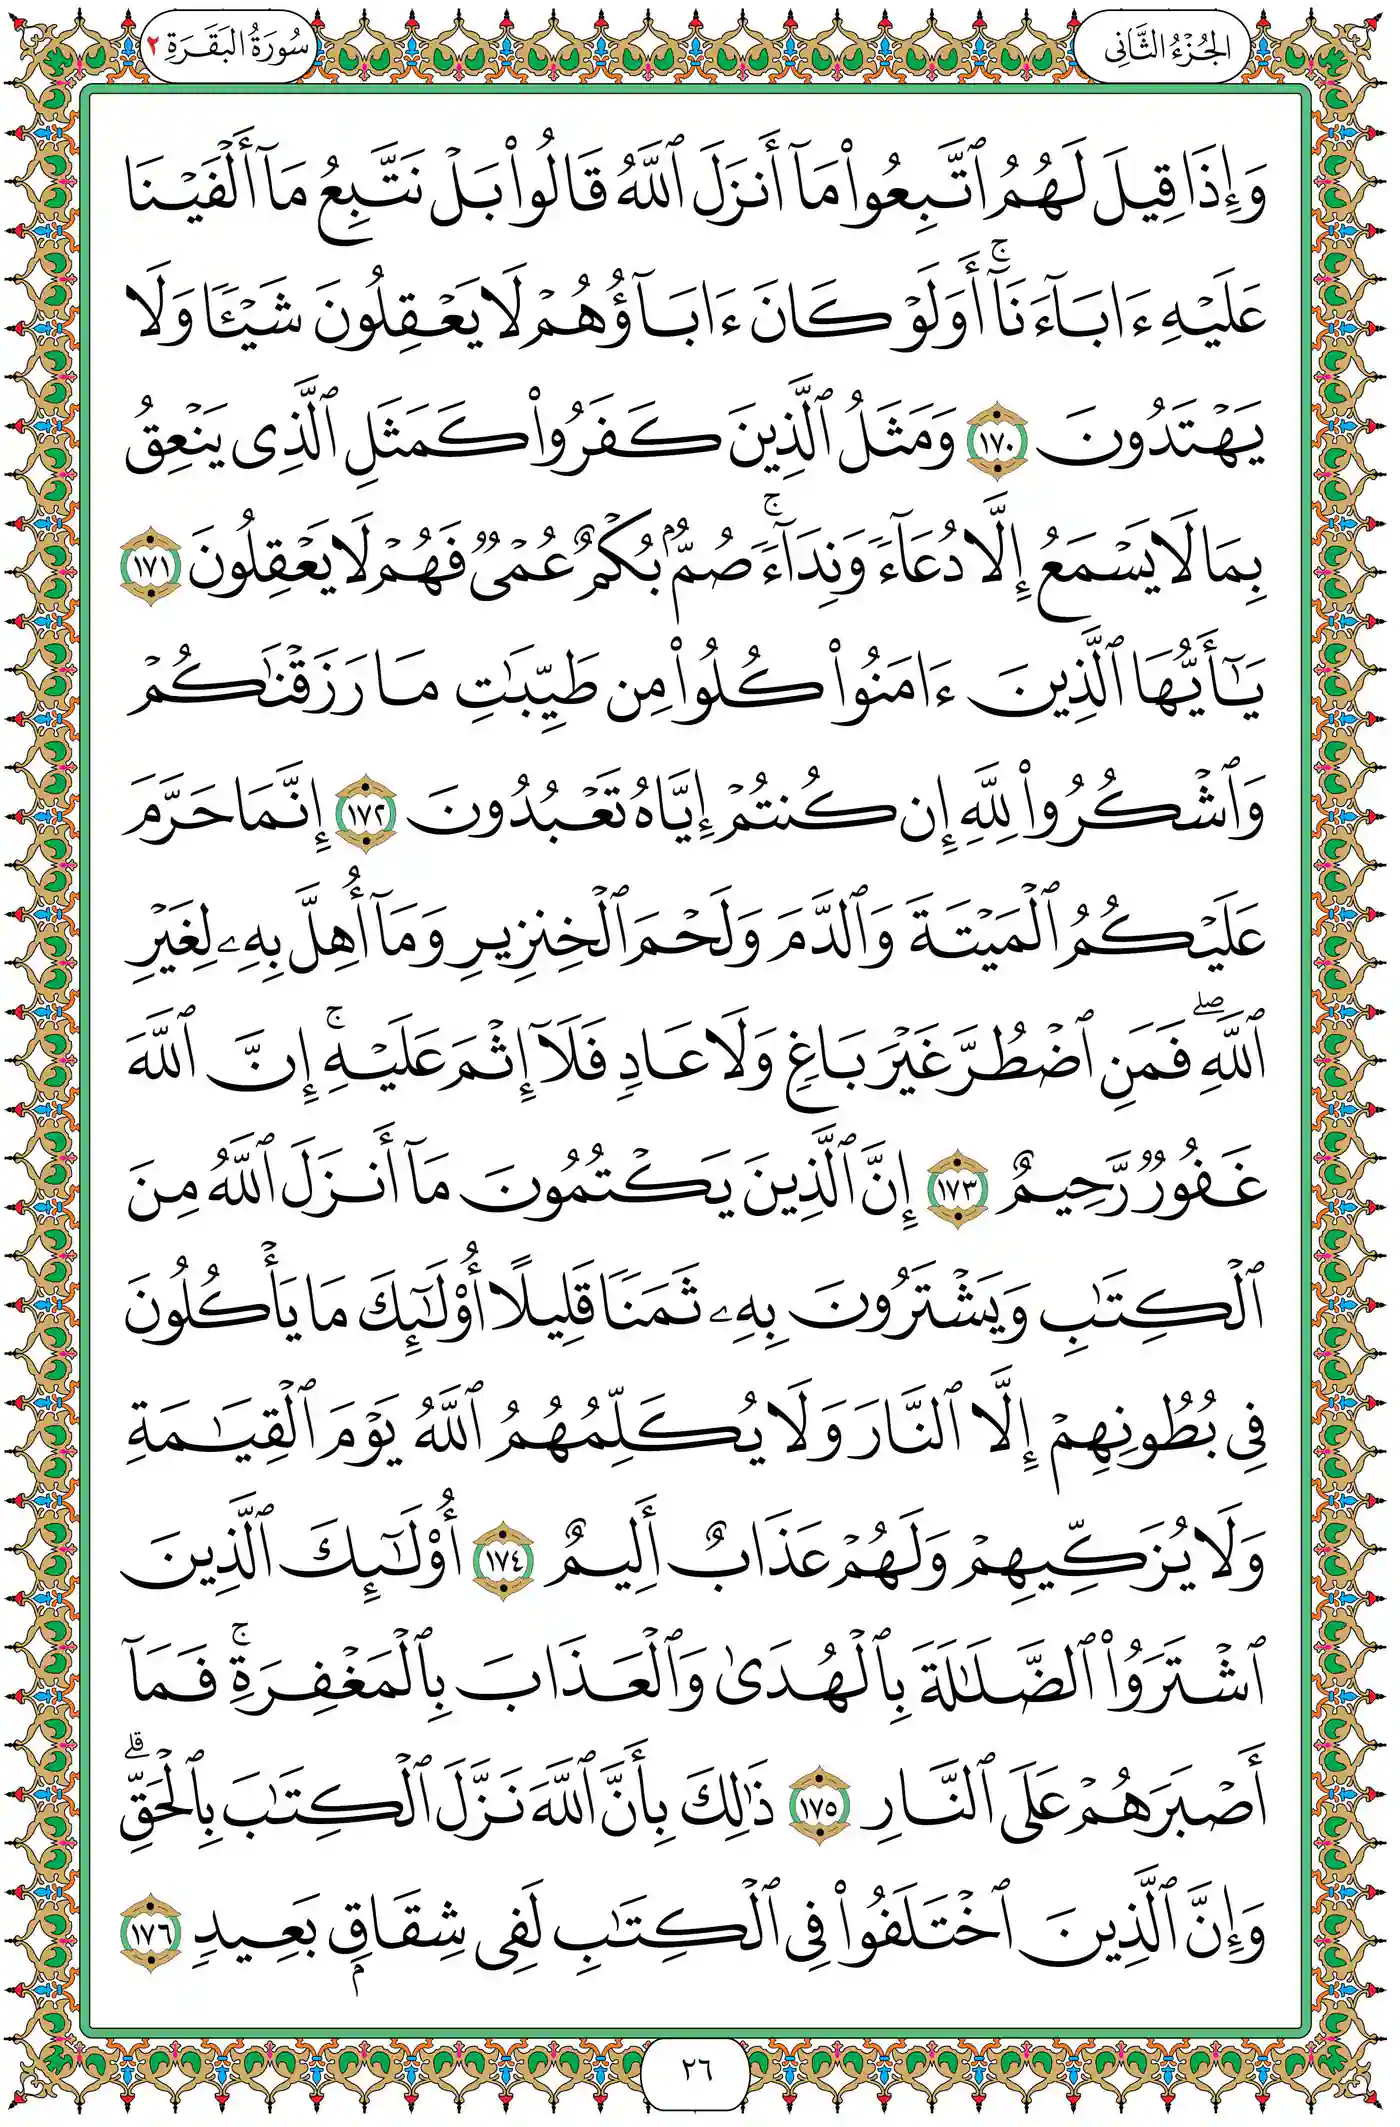 الجُزْءُ الثَّانِي
سُورَةُ البَقَرَةِ ٢
وَإِذَا قِيلَ لَهُمُ ٱتَّبِعُوا۟ مَآ أَنزَلَ ٱللَّهُ قَالُوا۟ بَلْ نَتَّبِعُ مَآ أَلْفَيْنَا
عَلَيْهِ ءَابَآءَنَآ ۚ أَوَلَوْ كَانَ ءَابَآؤُهُمْ لَا يَعْقِلُونَ شَيْـًٔا وَلَا
يَهْتَدُونَ ١٧٠ وَمَثَلُ ٱلَّذِينَ كَفَرُوا۟ كَمَثَلِ ٱلَّذِى يَنْعِقُ
بِمَا لَا يَسْمَعُ إِلَّا دُعَآءً وَنِدَآءً ۚ صُمٌّۢ بُكْمٌ عُمْىٌ فَهُمْ لَا يَعْقِلُونَ ١٧١
يَـٰٓأَيُّهَا ٱلَّذِينَ ءَامَنُوا۟ كُلُوا۟ مِن طَيِّبَـٰتِ مَا رَزَقْنَـٰكُمْ
وَٱشْكُرُوا۟ لِلَّهِ إِن كُنتُمْ إِيَّاهُ تَعْبُدُونَ ١٧٢ إِنَّمَا حَرَّمَ
عَلَيْكُمُ ٱلْمَيْتَةَ وَٱلدَّمَ وَلَحْمَ ٱلْخِنزِيرِ وَمَآ أُهِلَّ بِهِۦ لِغَيْرِ
ٱللَّهِ ۖ فَمَنِ ٱضْطُرَّ غَيْرَ بَاغٍ وَلَا عَادٍ فَلَآ إِثْمَ عَلَيْهِ ۚ إِنَّ ٱللَّهَ
غَفُورٌ رَّحِيمٌ ١٧٣ إِنَّ ٱلَّذِينَ يَكْتُمُونَ مَآ أَنزَلَ ٱللَّهُ مِنَ
ٱلْكِتَـٰبِ وَيَشْتَرُونَ بِهِۦ ثَمَنًا قَلِيلًا أُو۟لَـٰٓئِكَ مَا يَأْكُلُونَ
فِى بُطُونِهِمْ إِلَّا ٱلنَّارَ وَلَا يُكَلِّمُهُمُ ٱللَّهُ يَوْمَ ٱلْقِيَـٰمَةِ
وَلَا يُزَكِّيهِمْ وَلَهُمْ عَذَابٌ أَلِيمٌ ١٧٤ أُو۟لَـٰٓئِكَ ٱلَّذِينَ
ٱشْتَرَوُا۟ ٱلضَّلَـٰلَةَ بِٱلْهُدَىٰ وَٱلْعَذَابَ بِٱلْمَغْفِرَةِ ۚ فَمَآ
أَصْبَرَهُمْ عَلَى ٱلنَّارِ ١٧٥ ذَٰلِكَ بِأَنَّ ٱللَّهَ نَزَّلَ ٱلْكِتَـٰبَ بِٱلْحَقِّ ۗ
وَإِنَّ ٱلَّذِينَ ٱخْتَلَفُوا۟ فِى ٱلْكِتَـٰبِ لَفِى شِقَاقٍۭ بَعِيدٍ ١٧٦
٢٦